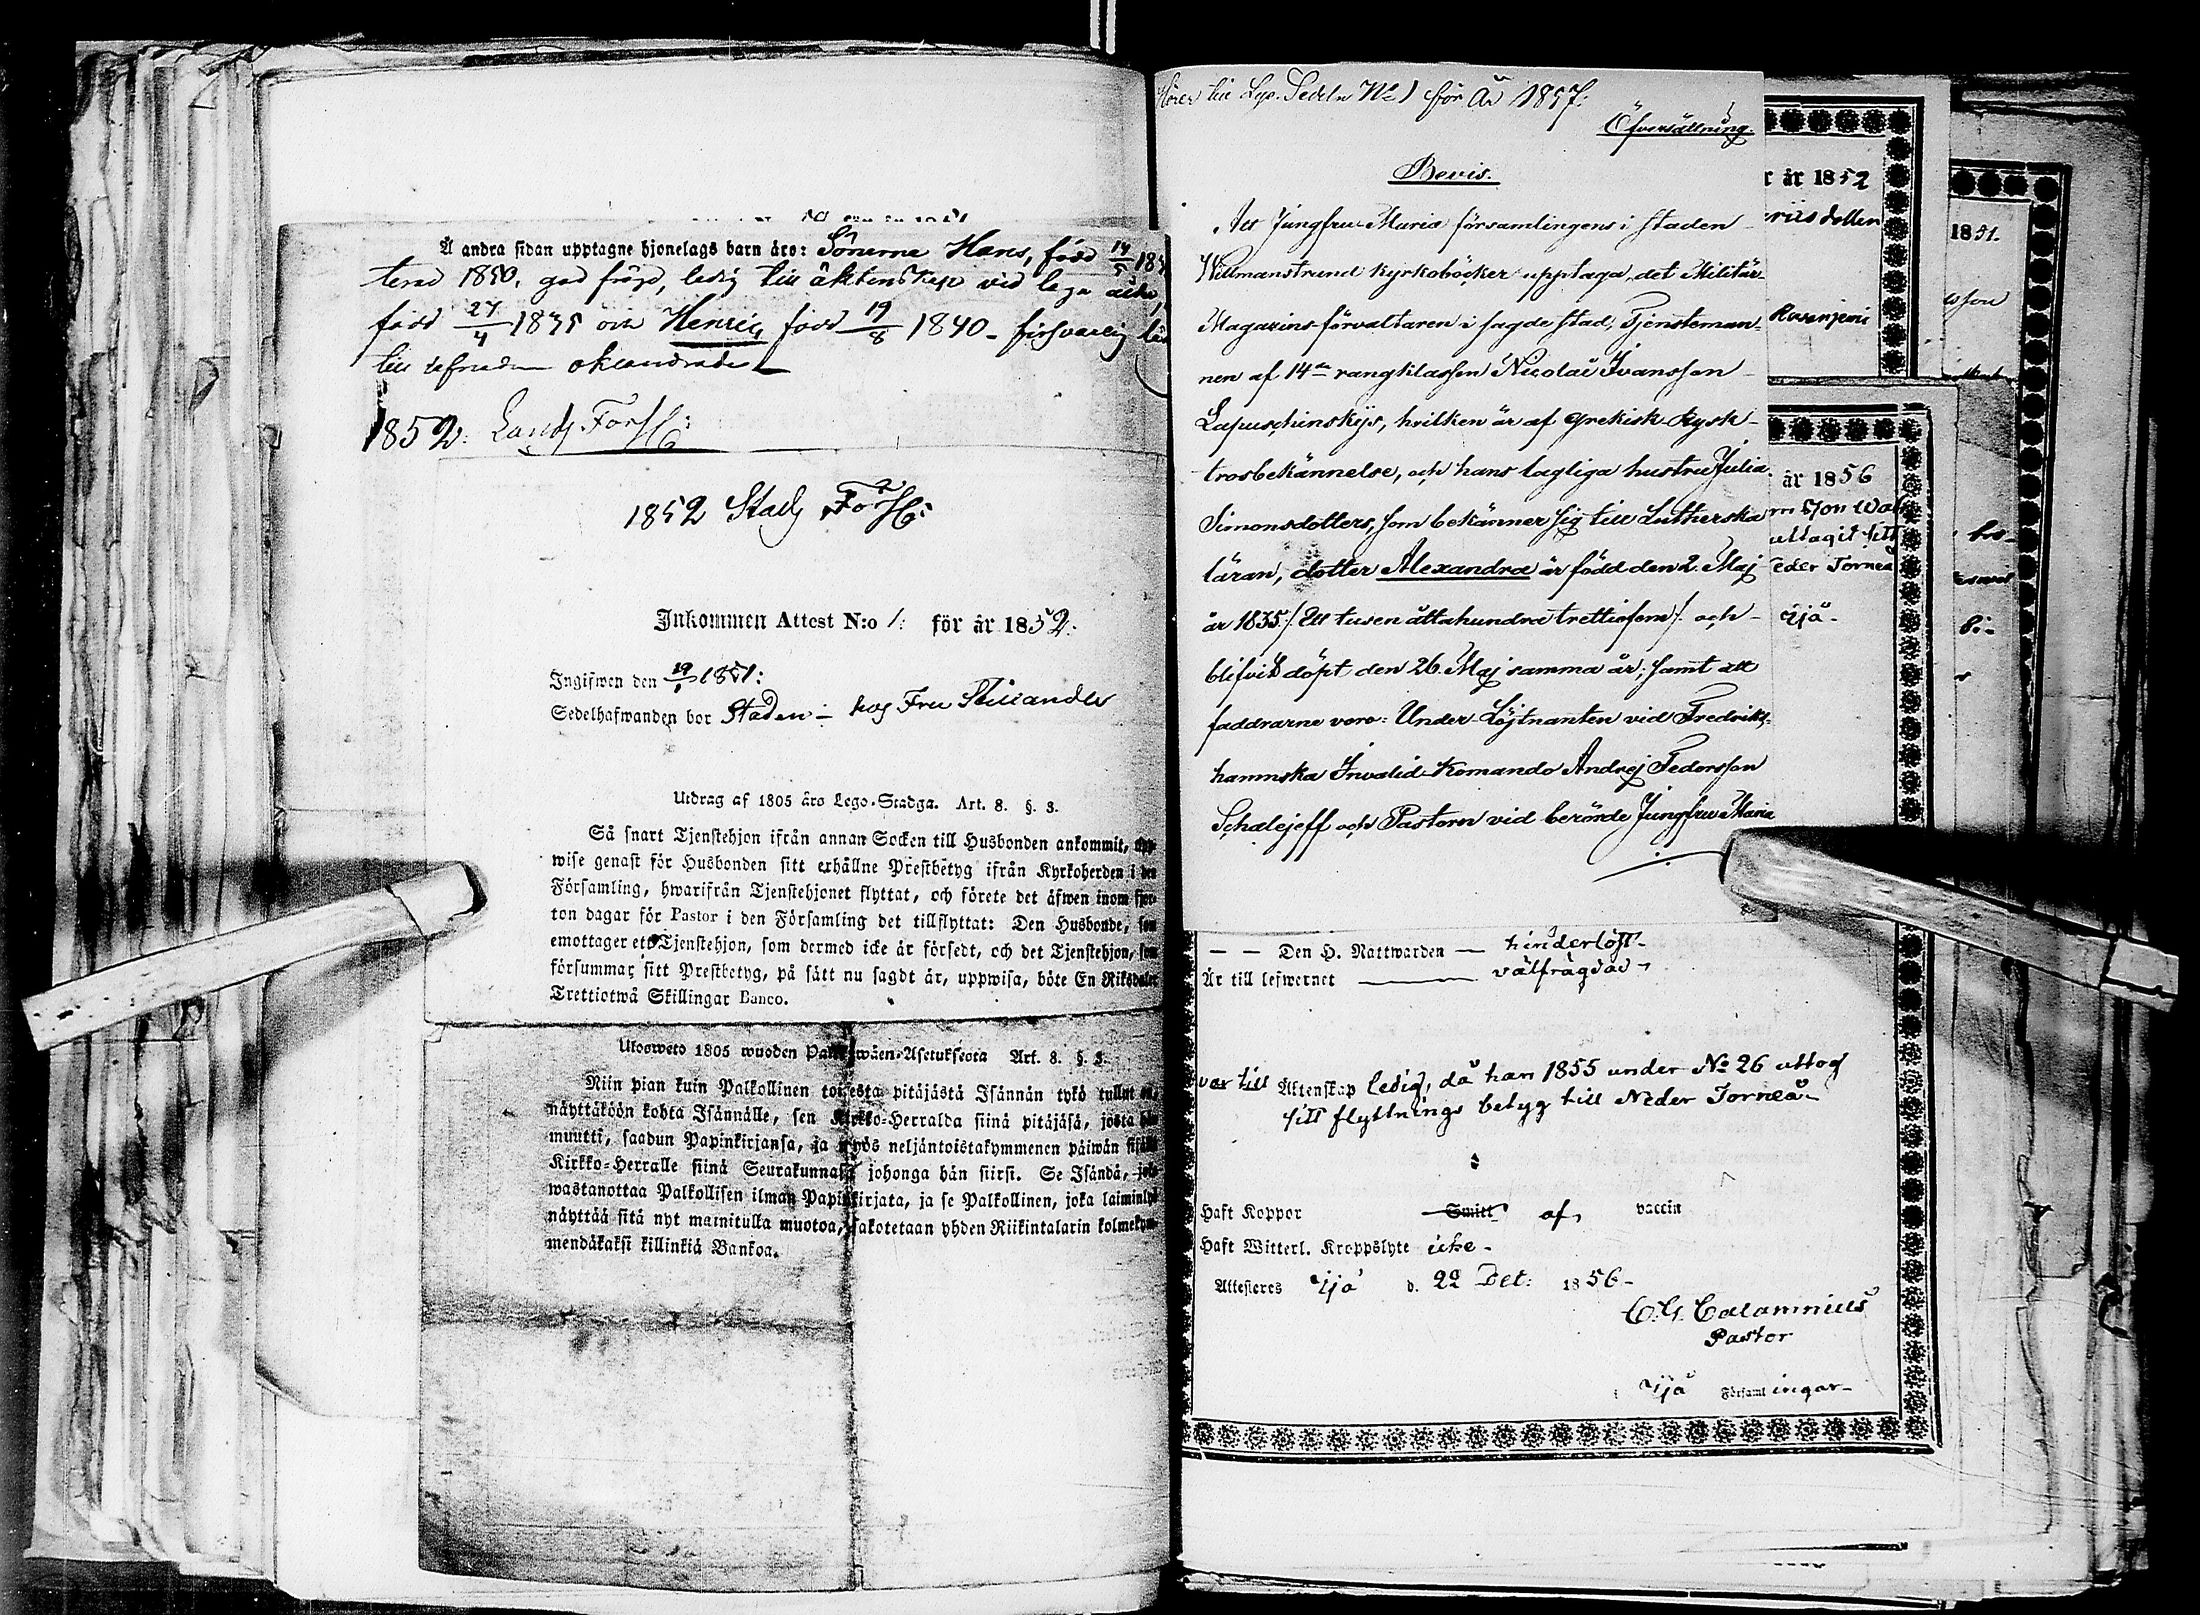 Å andra sidan upptagne hjonelags barn äro: Sönerne Hans, född 14/5 18
terad 1850, god fräjd, ledig till äktenskap vid laga
född 27/4 1835 och Henric, född 19/8 1840 - försvarlig
till
1852. Lands Förs:
1852 Stads Förs:
Inkommen Attest N:o 1: för år 1852.
Ingifwen den 19/1 1851:
Sedelhafwanden bor Staden - hos Fru
Utdrag af 1805 års Lego-Stadga. Art. 8. §. 3.
Så snart Tjenstehjon ifrån annan Socken till Husbonden ankommit, upp-
wise genast för Husbonden sitt erhållne Prestbetyg ifrån Kyrkoherden i den
Församling, hwarifrån Tjenstehjonet flyttat, och förete det äfwen inom fjor-
ton dagar för Pastor i den Församling det tillflyttat: Den Husbonde, som
emottager ett Tjenstehjon, som dermed icke är försedt, och det Tjenstehjon, som
försummar sitt Prestbetyg, på sätt nu sagdt är, uppwisa, böte En Riksdaler
Trettiotwå Skillingar Banco.
Ulosweto 1805 wuoden Palkowäen-Asetuksesta Art. 8. §. 3.
Niin pian kuin Palkollinen toisesta pitäjästä Isännän tykö tullut on,
näyttäköön kohta Isännälle, sen Kirkko-Herralda siinä pitäjäsä, josta hän
muutti, saadun Papinkirjansa, ja myös neljäntoistakymmenen päiwän sisällä
Kirkko-Herralle siinä Seurakunnassa johonga hän siirsi. Se Isändä, joka
wastanottaa Palkollisen ilman Papinkirjata, ja se Palkollinen, joka laiminlyö
näyttää sitä nyt mainitulla muotoa, sakotetaan yhden Riikintalarin kolmekym-
mendäkaksi killinkiä Bankoa.
hörer till Lys. Sedeln No 1 för År 1857:
Öfversättning.
Bevis.
Att Jungfru Maria församlingens i staden
Willmanstrand kyrkoböcker upptaga, det Militär-
Magazins-förvaltaren i sagde stad, Tjensteman-
nen af 14de rangklassen Nicolai Ivansson
Lapuschinskijs, hvilken är af Grekisk-Rysk-
trosbekännelse, och hans lagliga hustru Julia
Simonsdotters, som bekänner sig till Lutherska
läran, dotter Alexandra är född den 2. Maj
år 1835 /: Ett tusen åttahundra trettiofem /: och
blifvit döpt den 26. Maj samma år; samt att
faddrarne voro: Under-Löjtnanten vid Fredriks-
hamnska Invalid-Komando Andrej Fedorsson
Schalejeff och Pastorn vid berörde Jungfru Maria
— — Den H. Nattwarden — hinderlöst -
Är till lefwernet — välfrägdad -
var till Äktenskap ledig, då han 1855 under No 26 uttog
sitt flyttnings betyg till Neder Torneå -
Haft Koppor Smitt af vaccin
Haft Witterl. Kroppslyte icke -
Attesteres Ijå d. 22 Oct: 1856 -
C. G. Calamnius
Pastor
Ijå Församlingar -
r år 1852
år 1856
on Wal
uttagit sitt
Neder Torneå
Ijå -
1851.